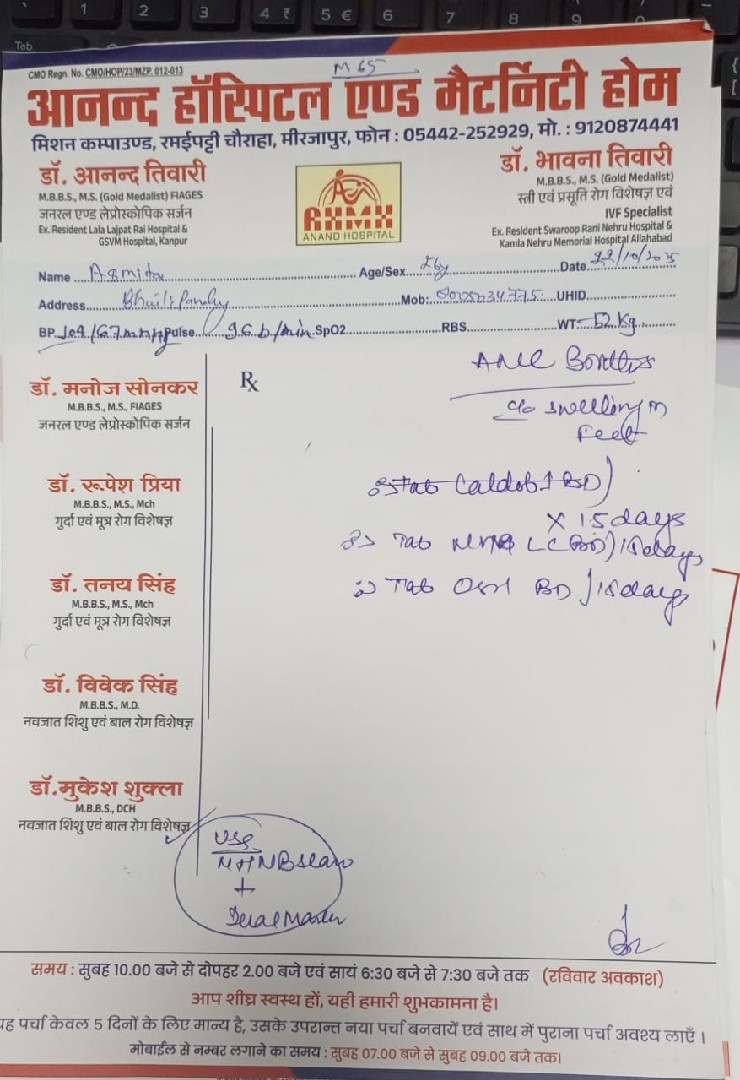 Tab
1 2 3 4 ₹ 5 € 6 7 8 9
CMO Regn. No. CMO/HCP/23/MZP. 012-013
M 65
आनन्द हॉस्पिटल एण्ड मैटर्निटी होम
मिशन कम्पाउण्ड, रमईपट्टी चौराहा, मीरजापुर, फोन : 05442-252929, मो. : 9120874441
डॉ. आनन्द तिवारी
M.B.B.S., M.S. (Gold Medalist) FIAGES
जनरल एण्ड लेप्रोस्कोपिक सर्जन
Ex. Resident Lala Lajpat Rai Hospital &
GSVM Hospital, Kanpur
AHMH
ANAND HOSPITAL
डॉ. भावना तिवारी
M.B.B.S., M.S. (Gold Medalist)
स्त्री एवं प्रसूति रोग विशेषज्ञ एवं
IVF Specialist
Ex. Resident Swaroop Rani Nehru Hospital &
Kamla Nehru Memorial Hospital Allahabad
Name Asmita Age/Sex Date 22/10/2025
Address Mob: UHID
BP Pulse 96 b/min SpO2 RBS WT- 52 Kg
Rx
डॉ. मनोज सोनकर
M.B.B.S., M.S., FIAGES
जनरल एण्ड लेप्रोस्कोपिक सर्जन
डॉ. रूपेश प्रिया
M.B.B.S., M.S., Mch
गुर्दा एवं मूत्र रोग विशेषज्ञ
डॉ. तनय सिंह
M.B.B.S., M.S., Mch
गुर्दा एवं मूत्र रोग विशेषज्ञ
डॉ. विवेक सिंह
M.B.B.S., M.D.
नवजात शिशु एवं बाल रोग विशेषज्ञ
डॉ.मुकेश शुक्ला
M.B.B.S., DCH
नवजात शिशु एवं बाल रोग विशेषज्ञ
c/o swelling in
Feet
Tab BD
X 15 days
Tab LC BD / 15 days
Tab BD / 15 days
USG
+
समय : सुबह 10.00 बजे से दोपहर 2.00 बजे एवं सायं 6:30 बजे से 7:30 बजे तक (रविवार अवकाश)
आप शीघ्र स्वस्थ हों, यही हमारी शुभकामना है।
यह पर्चा केवल 5 दिनों के लिए मान्य है, उसके उपरान्त नया पर्चा बनवायें एवं साथ में पुराना पर्चा अवश्य लाएँ ।
मोबाईल से नम्बर लगाने का समय : सुबह 07.00 बजे से सुबह 09.00 बजे तक।